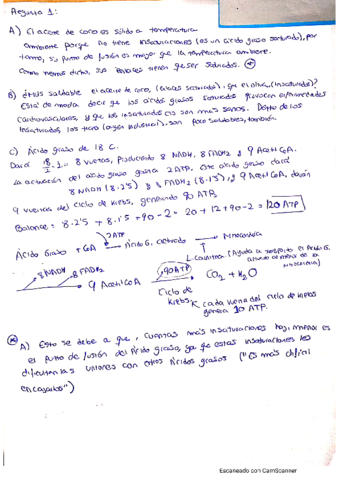 Pregunta 1:
A) El aceite de coco es sólido a temperatura
ambiente porque no tiene insaturaciones (es un ácido graso saturado), por
tanto, su punto de fusión es mayor que la temperatura ambiente.
Como hemos dicho, sus enlaces tienen que ser saturados. *
B) ¿Más saludable el aceite de coco, (ácidos saturado), que el oliva, (insaturado)?
Está de moda decir que los ácidos grasos saturados provocan enfermedades
cardiovasculares, y que los insaturados son más sanos. Dentro de los
insaturados, los trans (origen industrial), son poco saludables, también.
c) Ácido graso de 18 C.
Dará 18/2 - 1 = 8 vueltas, produciendo 8 NADH, 8 FADH2 y 9 Acetil CoA.
La activación del ácido graso gasta 2 ATP. Este ácido graso dará
8 NADH (8·2'5) y 8 FADH2 (8·1'5), y 9 Acetil CoA, darán
9 vueltas del ciclo de Krebs, generando 90 ATP.
Balance = 8·2'5 + 8·1'5 + 90 - 2 = 20 + 12 + 90 - 2 = 120 ATP
2 ATP
Ácido Graso + CoA → Ácido G. activado → Mitocondria
L-Carnitina (Ayuda a
8 NADH 8 FADH2
9 Acetil CoA
90 ATP
CO2 + H2O
Ciclo de
Krebs
cada vuelta del ciclo de Krebs
genera 10 ATP.
* A) Esto se debe a que, cuantas más insaturaciones hay, menor es
el punto de fusión del ácido graso, ya que estas insaturaciones les
dificultan las uniones con otros ácidos grasos ("Es más difícil
encajarlos")
Escaneado con CamScanner